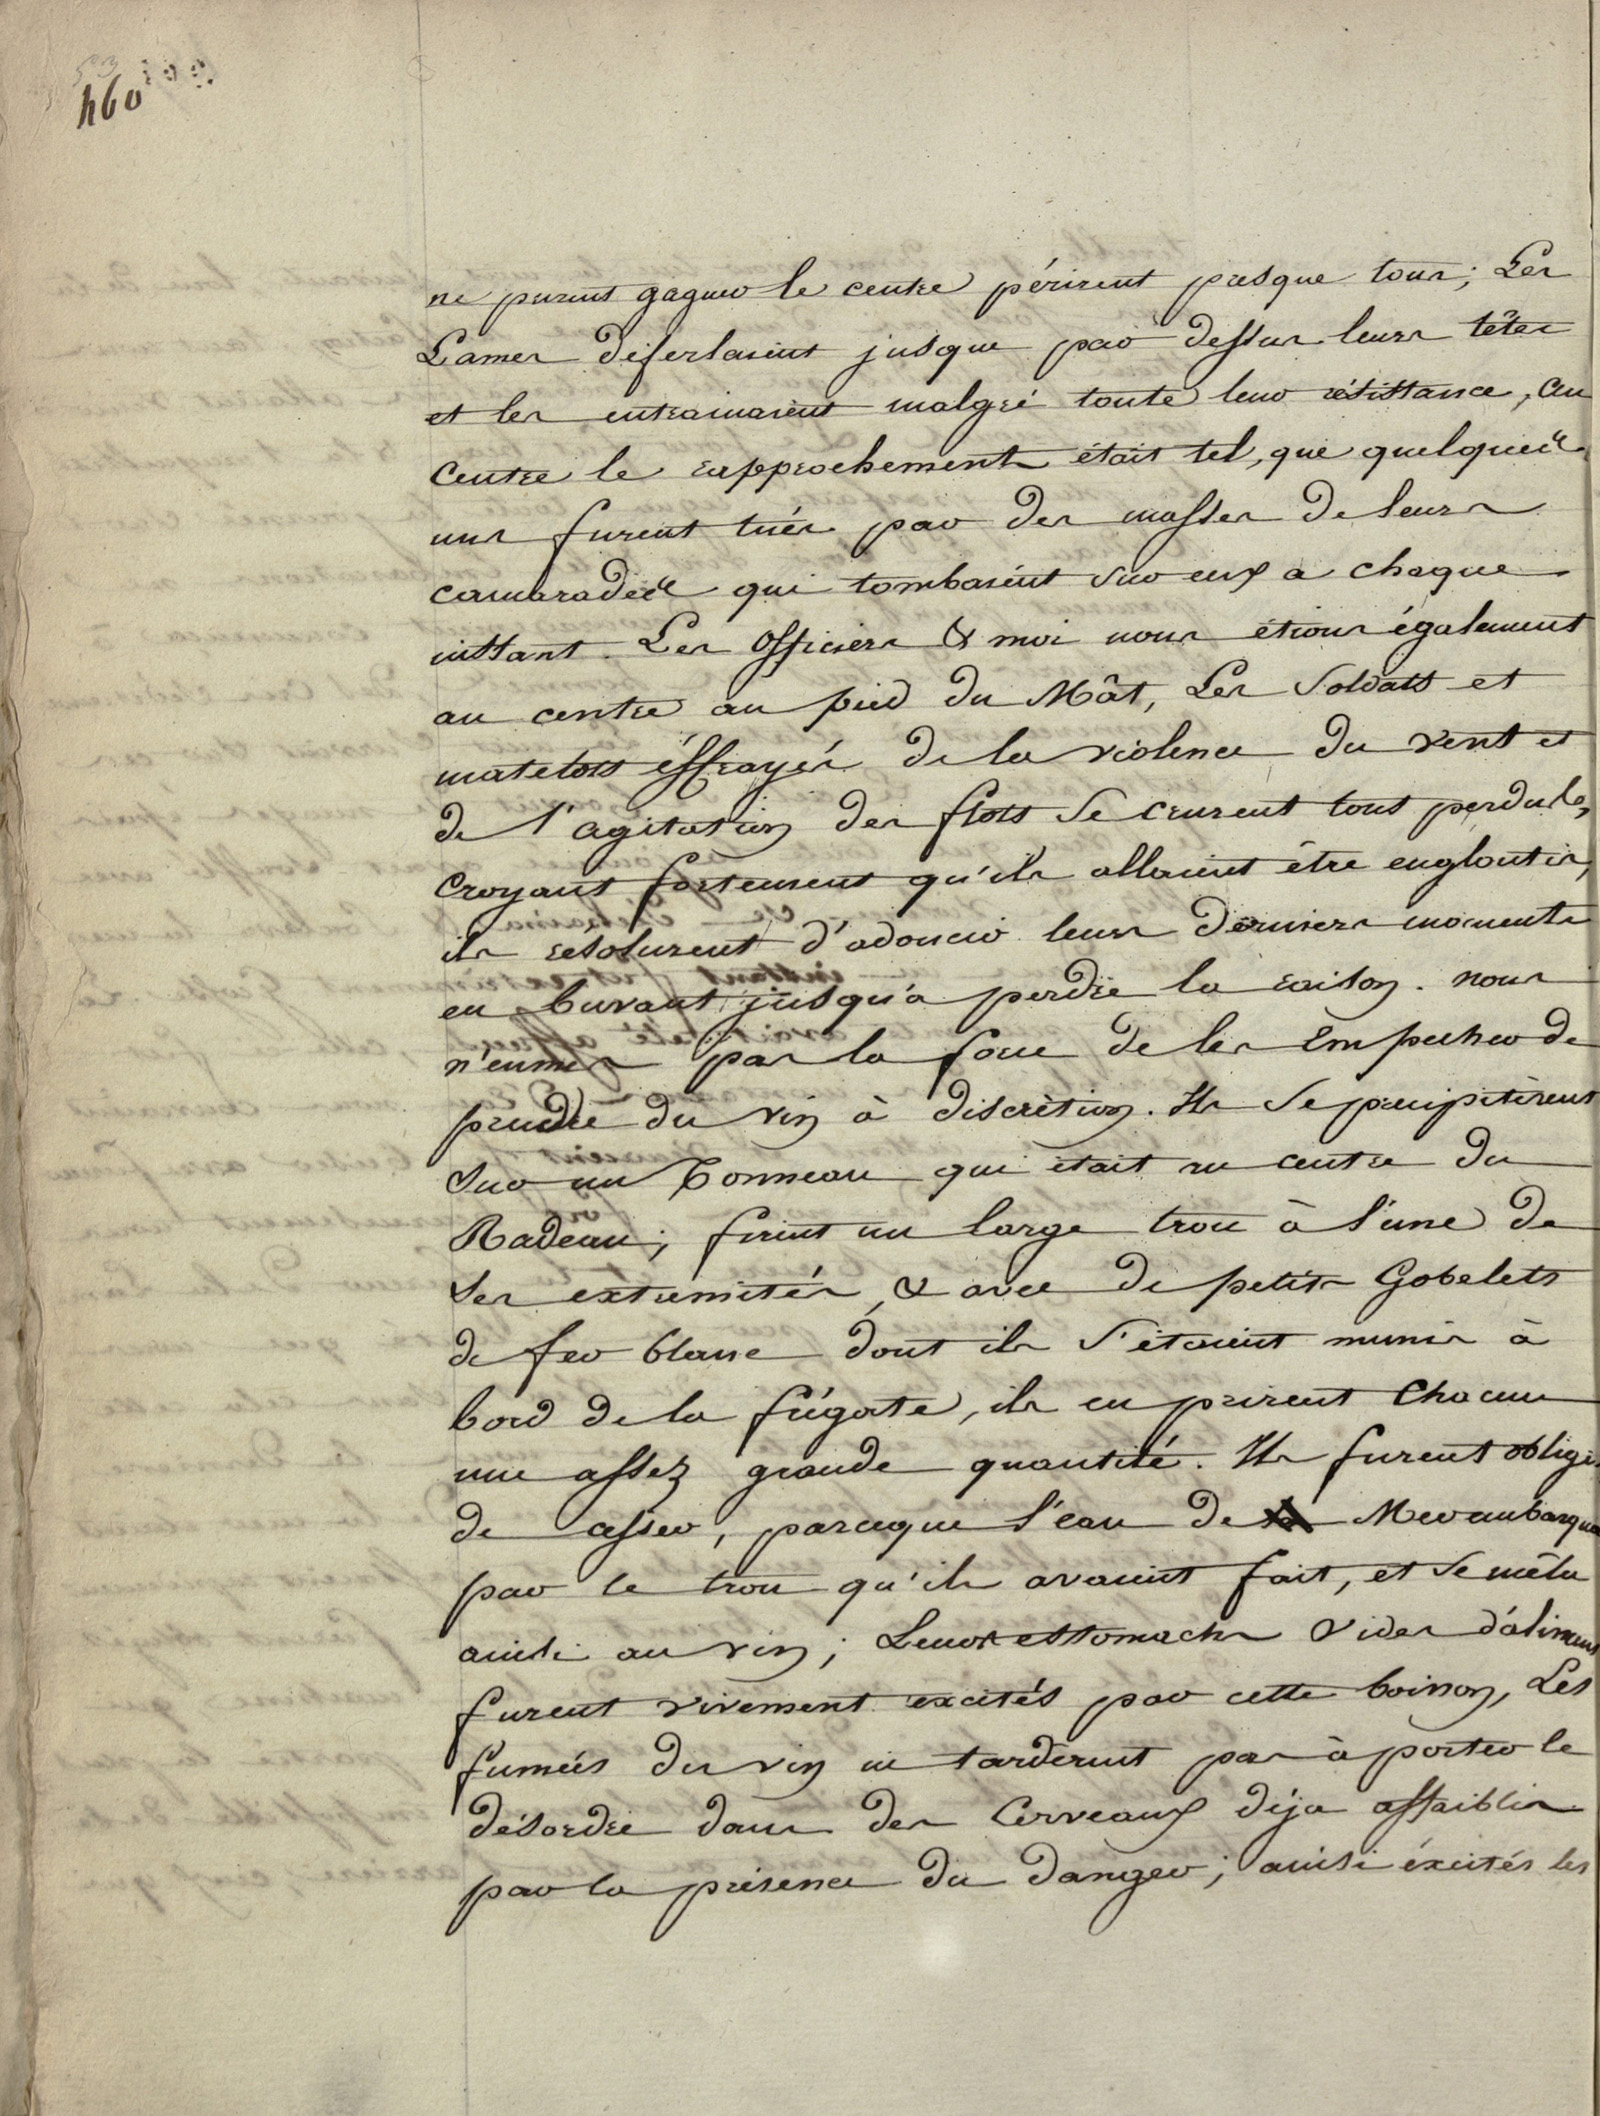 460
ne purent gagner le centre périrent presque tous; Les
Lames déferlaient jusque par dessus leurs têtes
et les entrainaient malgré toute leur résistance, au
centre le rapprochement était tel, que quelques
uns furent tués par des masses de leurs
camarades qui tombaient sur eux a chaque
instant. Les Officiers & moi nous étions également
au centre au pied du Mât, Les Soldats et
matelots éffrayés de la violence du vent et
de l'agitation des flots se crurent tous perdus,
croyant fortement qu'ils allaient être engloutis,
ils résolurent d'adoucir leurs derniers moments
en buvant jusqu'a perdre la raison. nous
n'eumes pas la force de les Empecher de
prendre du vin à discrètion. Ils se precipitèrent
sur un Tonneau qui était au centre du
Radeau; firent un large trou à l'une de
ses extremités, & avec de petits Gobelets
de fer blanc dont ils s'étaient munis à
bord de la frégate, ils en prirent chacun
une assez grande quantité. Ils furent obligés
de cesser, parceque l'eau de Mer embarqua
par le trou qu'ils avaient fait, et se mêla
ainsi au vin; Leurs estomachs vides d'alimens
furent vivement excités par cette boisson, Les
fumées du vin ne tarderent pas à porter le
désordre dans des Cerveaux déja affaiblis
par la présence du danger; ainsi éxcités les